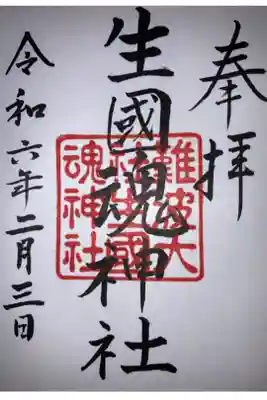 奉拝
生國魂神社
難波大社生國魂神社
令和六年二月三日